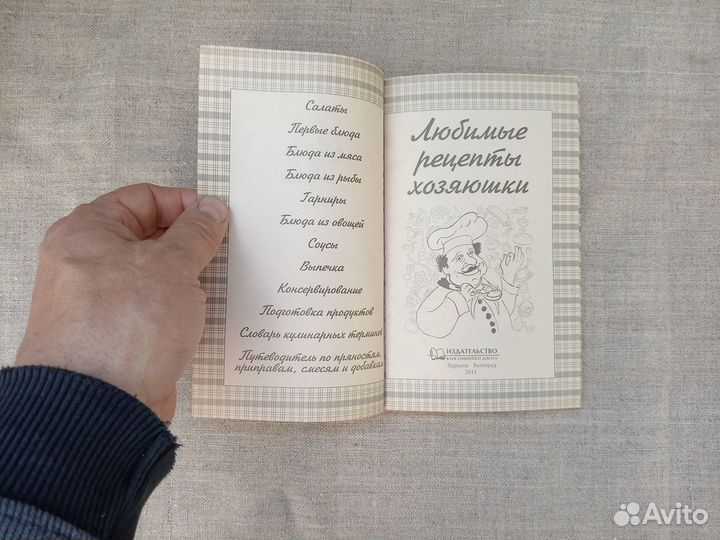 Салаты
Первые блюда
Блюда из мяса
Блюда из рыбы
Гарниры
Блюда из овощей
Соусы
Выпечка
Консервирование
Подготовка продуктов
Словарь кулинарных терминов
Путеводитель по пряностям,
приправам, смесям и добавкам
Любимые
рецепты
хозяюшки
ИЗДАТЕЛЬСТВО
КЛУБ СЕМЕЙНОГО ДОСУГА
Харьков Белгород
2011
Avito